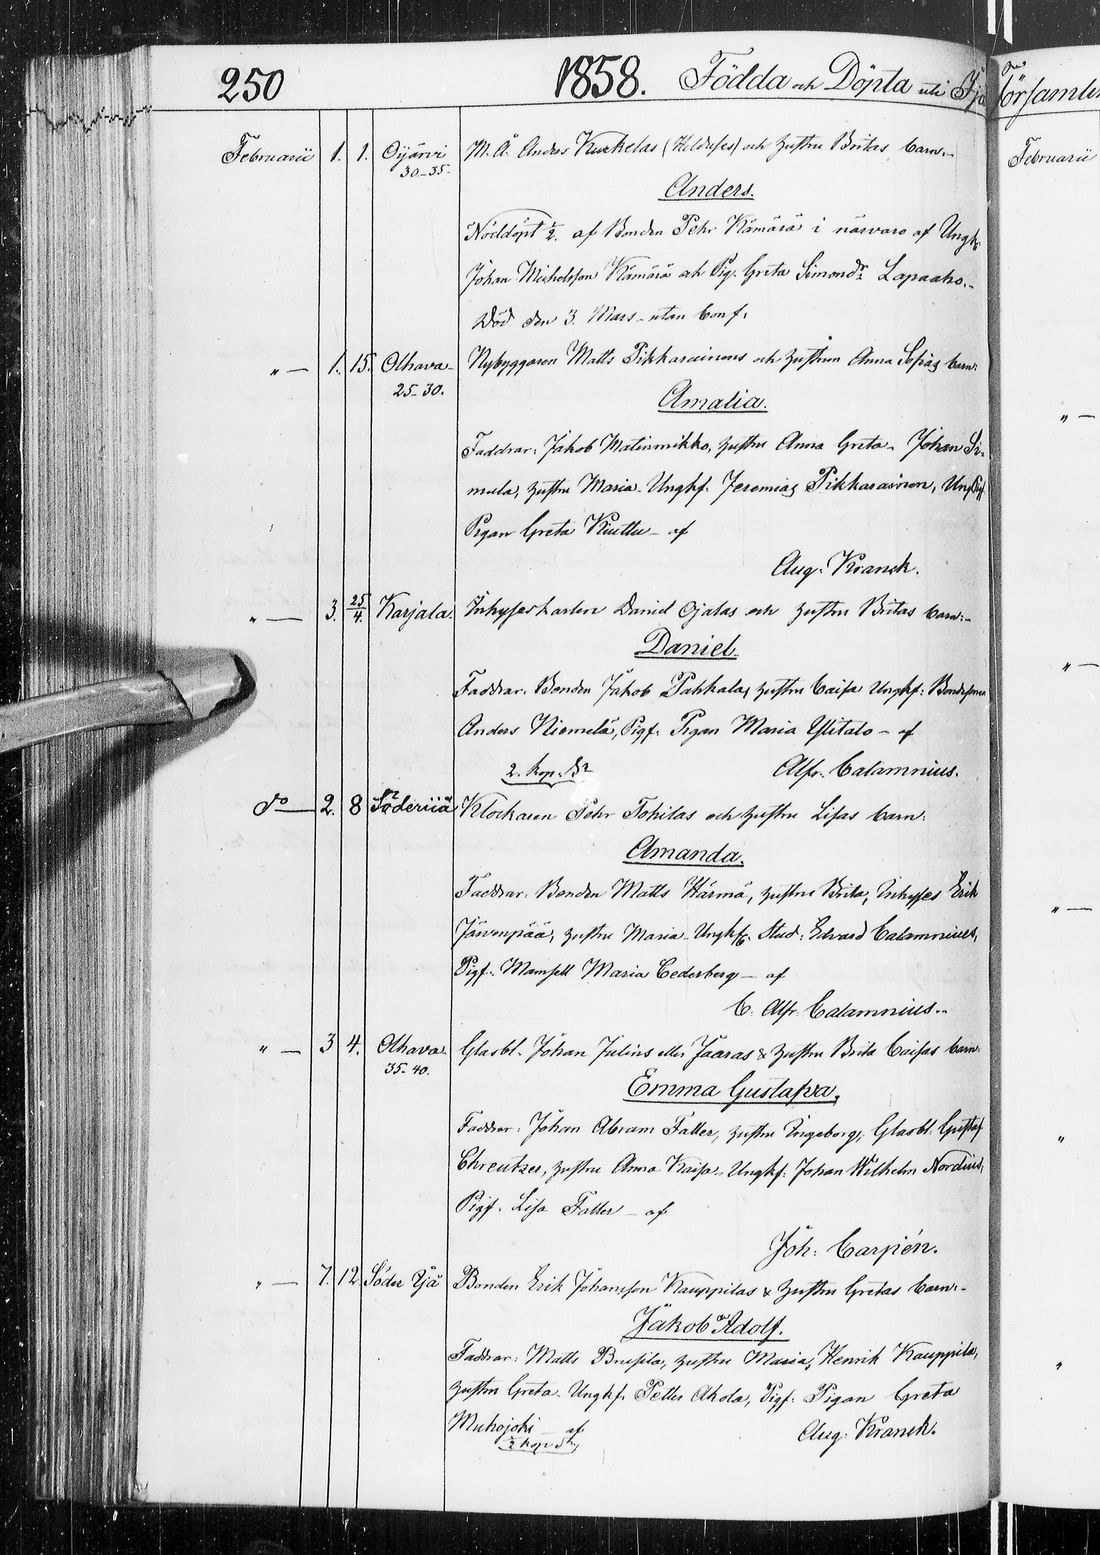 250 1858. Födda och Döpta uti Ijo församlin
Februarii 1. 1. Oijärvi M. Å. Andres Kurkelas och hustru Britas barn.
30-35.
Anders.
Nöddöpt ½. af Bonden Pehr Kämärä i närvaro af Ungk.
Johan Michelsson Kämärä och Pig. Greta Simonds Lapaaho.
Död den 3. Mars utan Conf.
" — 1. 15. Olhava Nybyggaren Matts Pikkarainens och hustrun Anna Sofias barn.
25-30.
Amalia.
Faddrar: Jakob Matinmikko, hustru Anna Greta - Johan Si-
mula, hustru Maria - Ungkf. Jeremias Pikkarainen, Ung
Pigan Greta Kuttu - af
Aug. Kranck.
" — 3. 25/4. Karjala. Inhyseskarlen Daniel Ojalas och hustru Britas barn.
Daniel.
Faddrar: Bonden Jakob Pahkala, hustru Caisa Ungkf: Bondesonen
Anders Niemelä, Pigf. Pigan Maria Ylitalo - af
2. kop. Sr Alfr. Calamnius.
do — 2. 8 Söderijå Klockaren Pehr Tohilas och hustru Lisas barn.
Amanda.
Faddrar: Bonden Matts Härmä, hustru Brita, Inhyses Erik
Järvenpää, hustru Maria - Ungkf. Stud. Edvard Calamnius,
Pigf. Mamsell Maria Cederberg - af
C. Alfr. Calamnius.
" — 3 4. Olhava Glasbl. Johan Julins eller Jaaras & hustru Brita Caisas barn.
35-40.
Emma Gustafva.
Faddrar: Johan Abram Faller, hustru Ingeborg, Glasbl. Gustaf
Chreutzer, hustru Anna Kaisa - Ungkf. Johan Wilhelm Nordlund,
Pigf. Lisa Faller - af
Joh: Carpén.
" — 7. 12. Söder Ijå Bonden Erik Johansson Kauppilas & hustru Gretas barn.
Jakob Adolf.
Faddrar: Matts Brusila, hustru Maria, Henrik Kauppila,
hustru Greta - Ungkf. Petter Akola, Pigf. Pigan Greta
Muhojoki - af Aug. Kranck.
½ kop Sr
Februarii